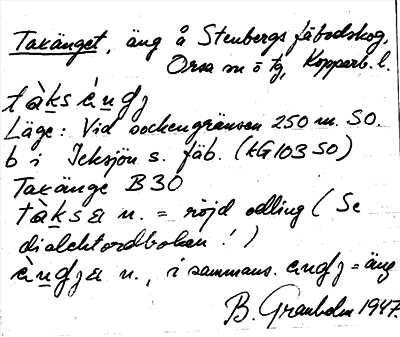 Taxänget, äng å Stenbergs fäbodskog,
Orsa sn o tg, Kopparb. l.
tàks èngj
Läge: Vid sockengränsen 250 m. SO.
b i Jeksjön s. fäb. (KG103 SO)
Taxänge B30
tàksa n. = röjd odling (Se
dialektordboken!)
èngja n., i sammans. engj = äng
B. Granholm 1947.